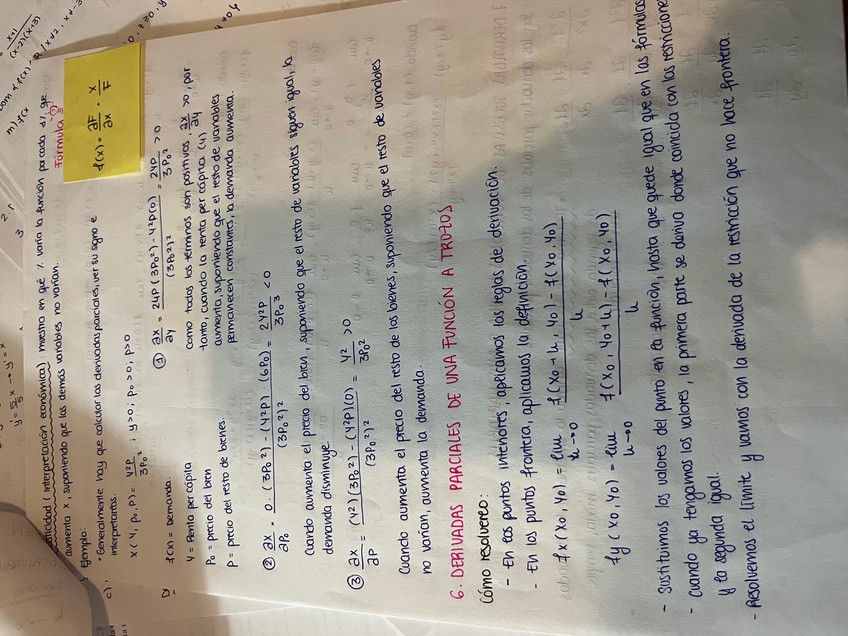 elasticidad (interpretación económica): muestra en qué % varía la función por cada 1% que
aumenta x, suponiendo que las demás variables no varían.
Fórmula =
f(x) = ∂F/∂x · x/F
Ejemplo:
• Generalmente hay que calcular las derivadas parciales, ver su signo e
interpretarlas.
x(Y, p₀, P) = Y²P/3P₀² ; y>0; p₀>0, p>0
f(x) = Demanda.
Y = Renta per cápita
P₀ = precio del bien
P = precio del resto de bienes.
① ∂x/∂y = 2YP(3P₀²) - Y²P(0)/(3P₀²)² = 2YP/3P₀² > 0
Como todos los términos son positivos ∂x/∂y >0, por
tanto, cuando la renta per cápita (Y)
aumenta, suponiendo que el resto de variables
permanecen constantes, la demanda aumenta.
② ∂x/∂P₀ = 0 (3P₀²) - (Y²P) (6P₀)/(3P₀²)² = 2Y²P/3P₀³ < 0
Cuando aumenta el precio del bien, suponiendo que el resto de variables siguen igual, la
demanda disminuye.
③ ∂x/∂P = (Y²)(3P₀²) - (Y²P)(0)/(3P₀²)² = Y²/3P₀² > 0
Cuando aumenta el precio del resto de los bienes, suponiendo que el resto de variables
no varían, aumenta la demanda.
6. DERIVADAS PARCIALES DE UNA FUNCIÓN A TROZOS
Cómo resolverlo:
- En los puntos interiores, aplicamos las reglas de derivación.
- En los puntos frontera, aplicamos la definición.
fx(x₀, y₀) = lim h→0 f(x₀+h, y₀) - f(x₀, y₀)/h
fy(x₀, y₀) = lim h→0 f(x₀, y₀+h) - f(x₀, y₀)/h
- Sustituimos los valores del punto en la función, hasta que quede igual que en las fórmulas
- Cuando ya tengamos los valores, la primera parte se deriva donde coincida con las restricciones
y la segunda igual.
- Resolvemos el límite y vamos con la derivada de la restricción que no hace frontera.